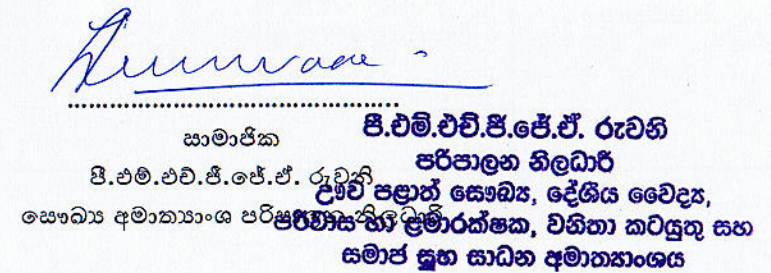 සාමාජික
පී.එම්.එච්.ජී.ජේ.ඒ. රුවනි
සෞඛ්‍ය අමාත්‍යාංශ පරිපාලන නිලධාරී
පී.එම්.එච්.ජී.ජේ.ඒ. රුවනි
පරිපාලන නිලධාරී
ඌව පළාත් සෞඛ්‍ය, දේශීය වෛද්‍ය,
පරිවාස හා ළමාරක්ෂක, වනිතා කටයුතු සහ
සමාජ සුභ සාධන අමාත්‍යාංශය